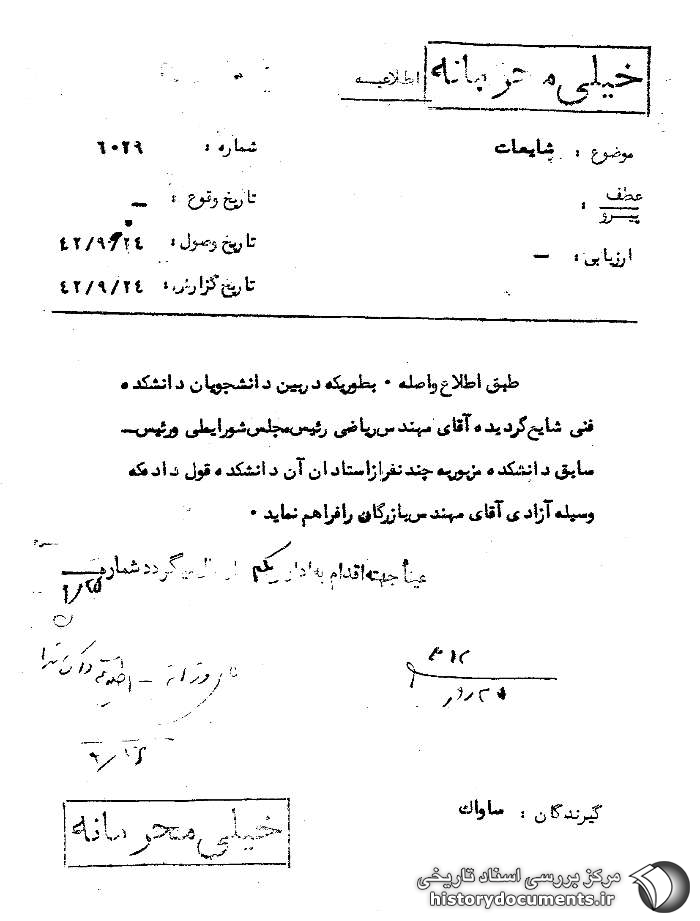 خیلی محرمانه
اطلاعیه
موضوع : شایعات
شماره : ٦٠٢٩
عطف
پیرو :
تاریخ وقوع : —
تاریخ وصول : ٤٢/٩/٢٤
ارزیابی : —
تاریخ گزارش : ٤٢/٩/٢٤
طبق اطلاع واصله ٠ بطوریکه در بین دانشجویان دانشکده
فنی شایع گردیده آقای مهندس ریاضی رئیس مجلس شورایملی و رئیس
سابق دانشکده مزبور به چند نفر از استادان آن دانشکده قول داده که
وسیله آزادی آقای مهندس بازرگان را فراهم نماید ٠
عیناً جهت اقدام به اداره یکم ارسال میگردد شماره
٣١٢
گیرندگان : ساواک
خیلی محرمانه
مرکز بررسی اسناد تاریخی
historydocuments.ir